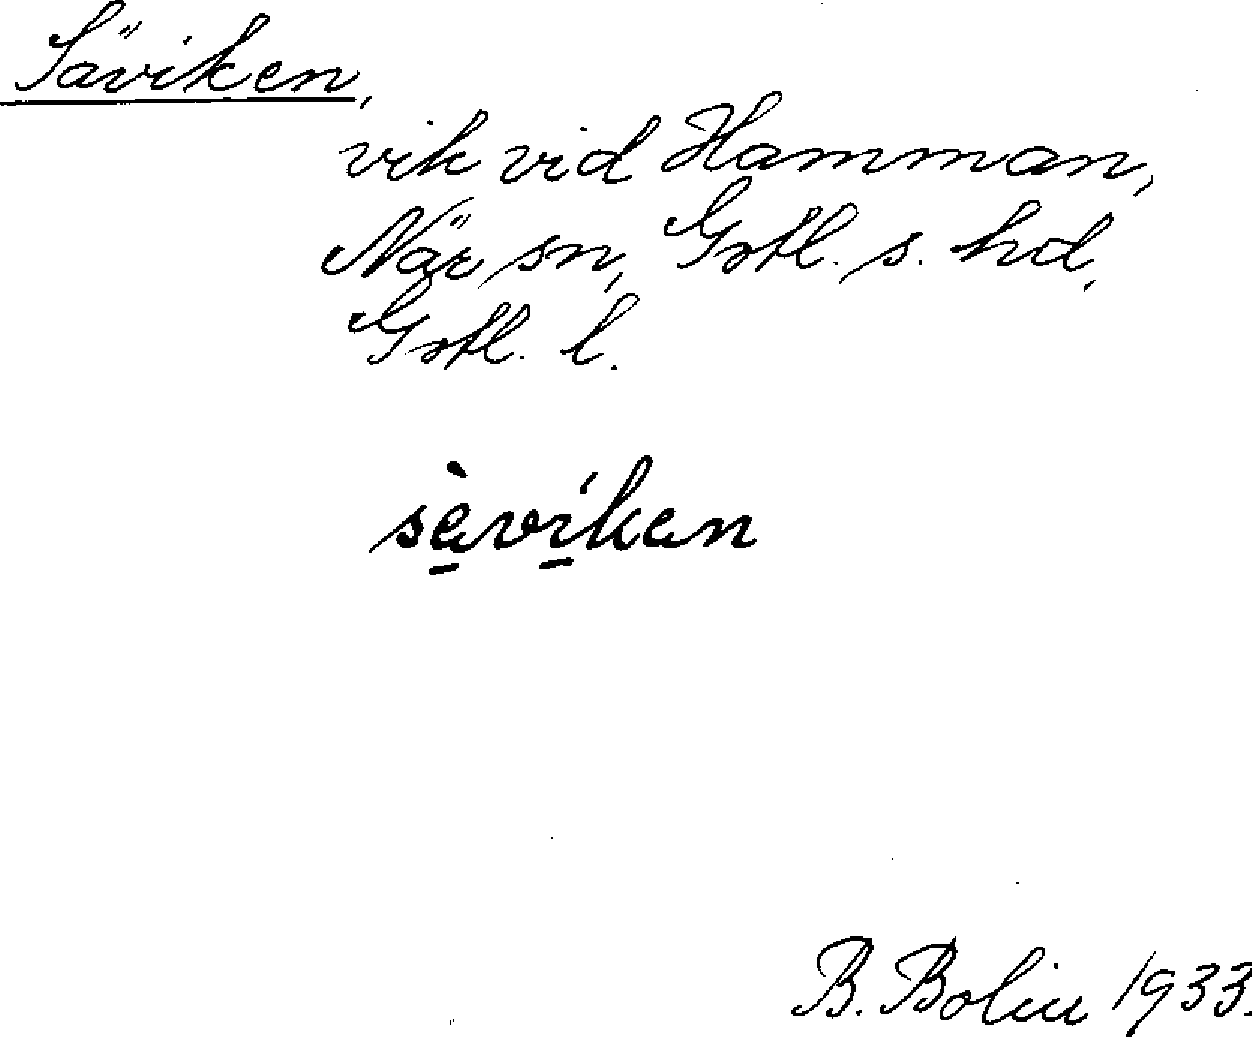 Säviken,
vik vid Hamman,
När sn, Gotl. s. hd,
Gotl. l.
sè̱ví̱kan
B. Bolin 1933.